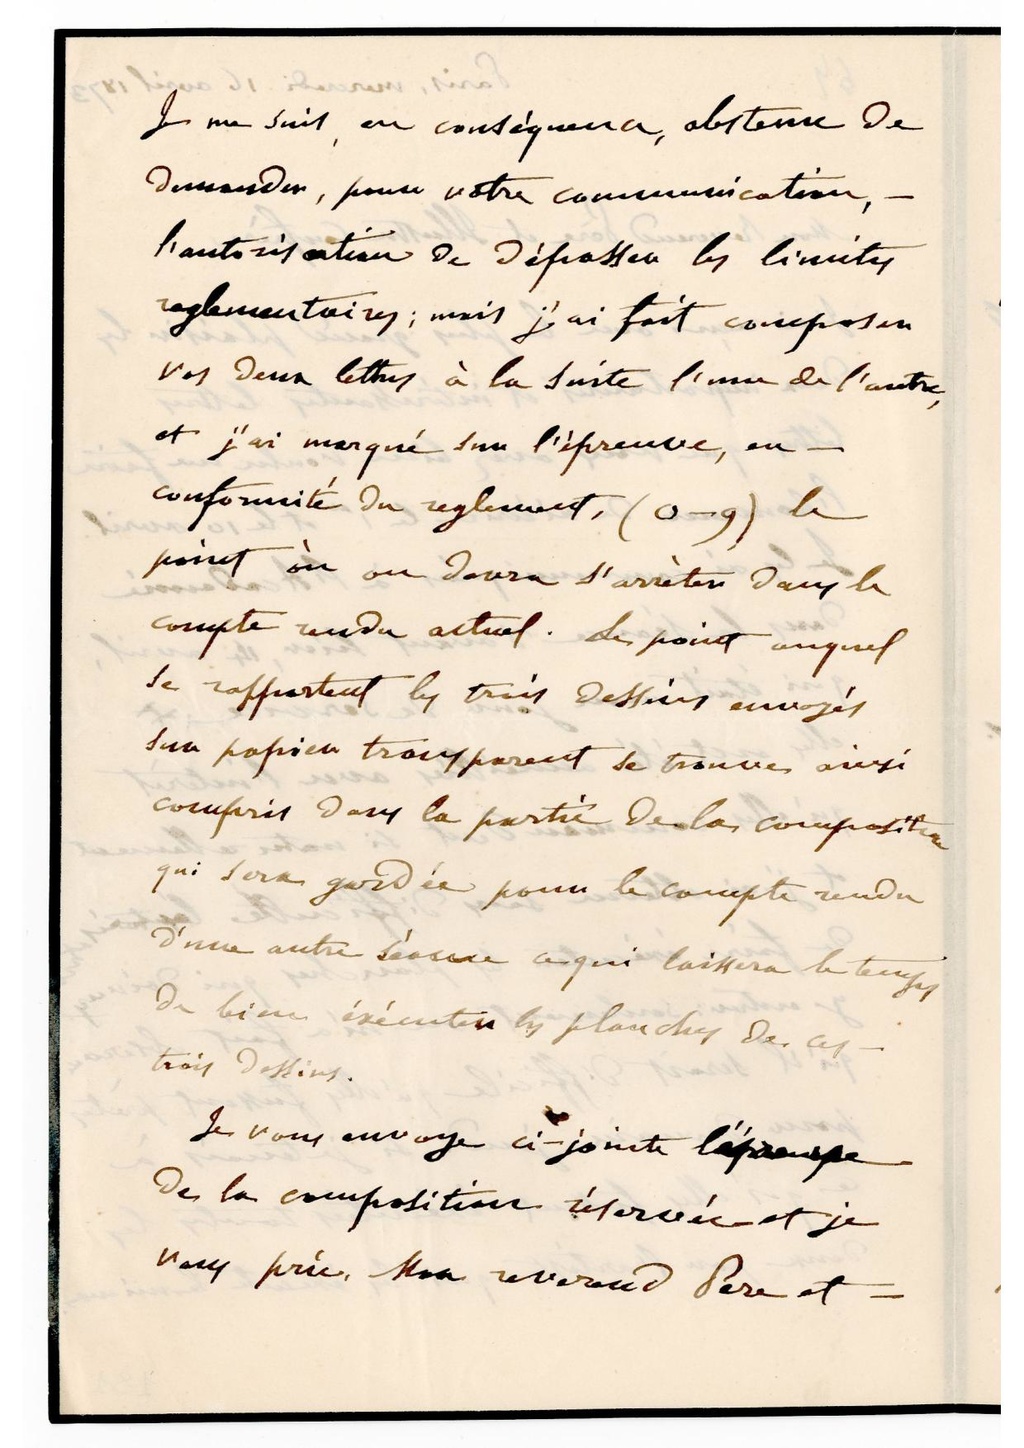 Je me suis, en conséquence, abstenu de
demander, pour votre communication, —
l'autorisation de dépasser les limites
reglementaires; mais j'ai fait composer
vos deux lettres à la suite l'une de l'autre,
et j'ai marqué sur l'épreuve, en —
conformité du reglement, (0—9) le
point òu on devra s'arrèter dans le
compte rendu actuel. Le point auquel
se rapportent les trois dessins envoyés
sur papier transparent se trouve ainsi
compris dans la partie de la composition
qui sera gardée pour le compte rendu
d'une autre séance ce qui laissera le temps
de bien éxécuter les planches de ces —
trois dessins.
Je vous envoye ci-jointe l'épreuve
de la composition réservée et je
vous prie, Mon reverend Pere et —